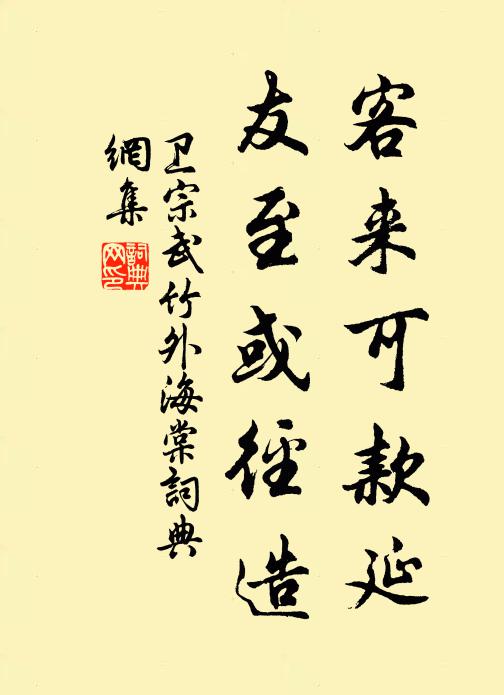 客来可款延
友至或径造
卫宗武竹外海棠詞典
網集
詞典网印